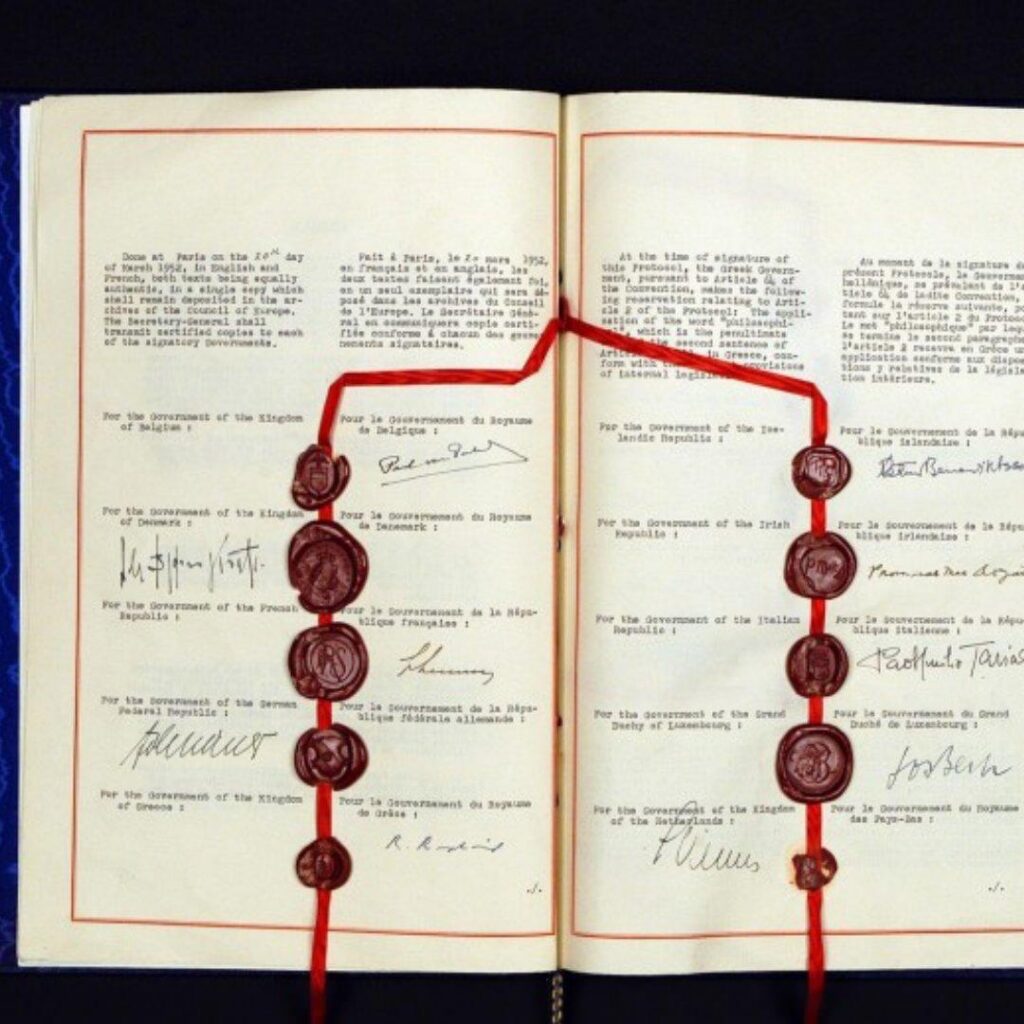 Done at Paris on the 20th day
of March 1952, in English and
French, both texts being equally
authentic, in a single copy which
shall remain deposited in the ar-
chives of the Council of Europe.
The Secretary-General shall
transmit certified copies to each
of the signatory Governments.
Fait à Paris, le 20 mars 1952,
en français et en anglais, les
deux textes faisant également foi,
en un seul exemplaire qui sera dé-
posé dans les archives du Conseil
de l'Europe. Le Secrétaire Géné-
ral en communiquera copie certi-
fiée conforme à chacun des gouver-
nements signataires.
For the Government of the Kingdom
of Belgium :
Pour le Gouvernement du Royaume
de Belgique :
For the Government of the Kingdom
of Denmark :
Pour le Gouvernement du Royaume
de Danemark :
For the Government of the French
Republic :
Pour le Gouvernement de la Répu-
blique française :
For the Government of the German
Federal Republic :
Pour le Gouvernement de la Répu-
blique fédérale allemande :
For the Government of the Kingdom
of Greece :
Pour le Gouvernement du Royaume
de Grèce :
./.
At the time of signature of
this Protocol, the Greek Govern-
ment, pursuant to Article 64 of
the Convention, makes the follow-
ing reservation relating to Arti-
cle 2 of the Protocol: The appli-
cation of the word "philosophi-
which is the penultimate
the second sentence of
in Greece, con-
form with the provisions
of internal
Au moment de la signature du
présent Protocole, le Gouverne
hellénique, se prévalant de l'Ar
ticle 64 de ladite Convention,
formule la réserve suivante, por
tant sur l'article 2 du Protoco
Le mot "philosophique" par leq
se termine le second paragraphe
l'article 2 recevra en Grèce un
application conforme aux dispos
tions y relatives de la législa
tion intérieure.
For the Government of the Ice-
landic Republic :
Pour le Gouvernement de la Répu
blique islandaise :
For the Government of the Irish
Republic :
Pour le Gouvernement de la Répu
blique irlandaise :
For the Government of the Italian
Republic :
Pour le Gouvernement de la Répu
blique italienne :
For the Government of the Grand
Duchy of Luxembourg :
Pour le Gouvernement du Grand
Duché de Luxembourg :
Jos Bech
For the Government of the Kingdom
of the Netherlands :
Pour le Gouvernement du Royaume
des Pays-Bas :
./.